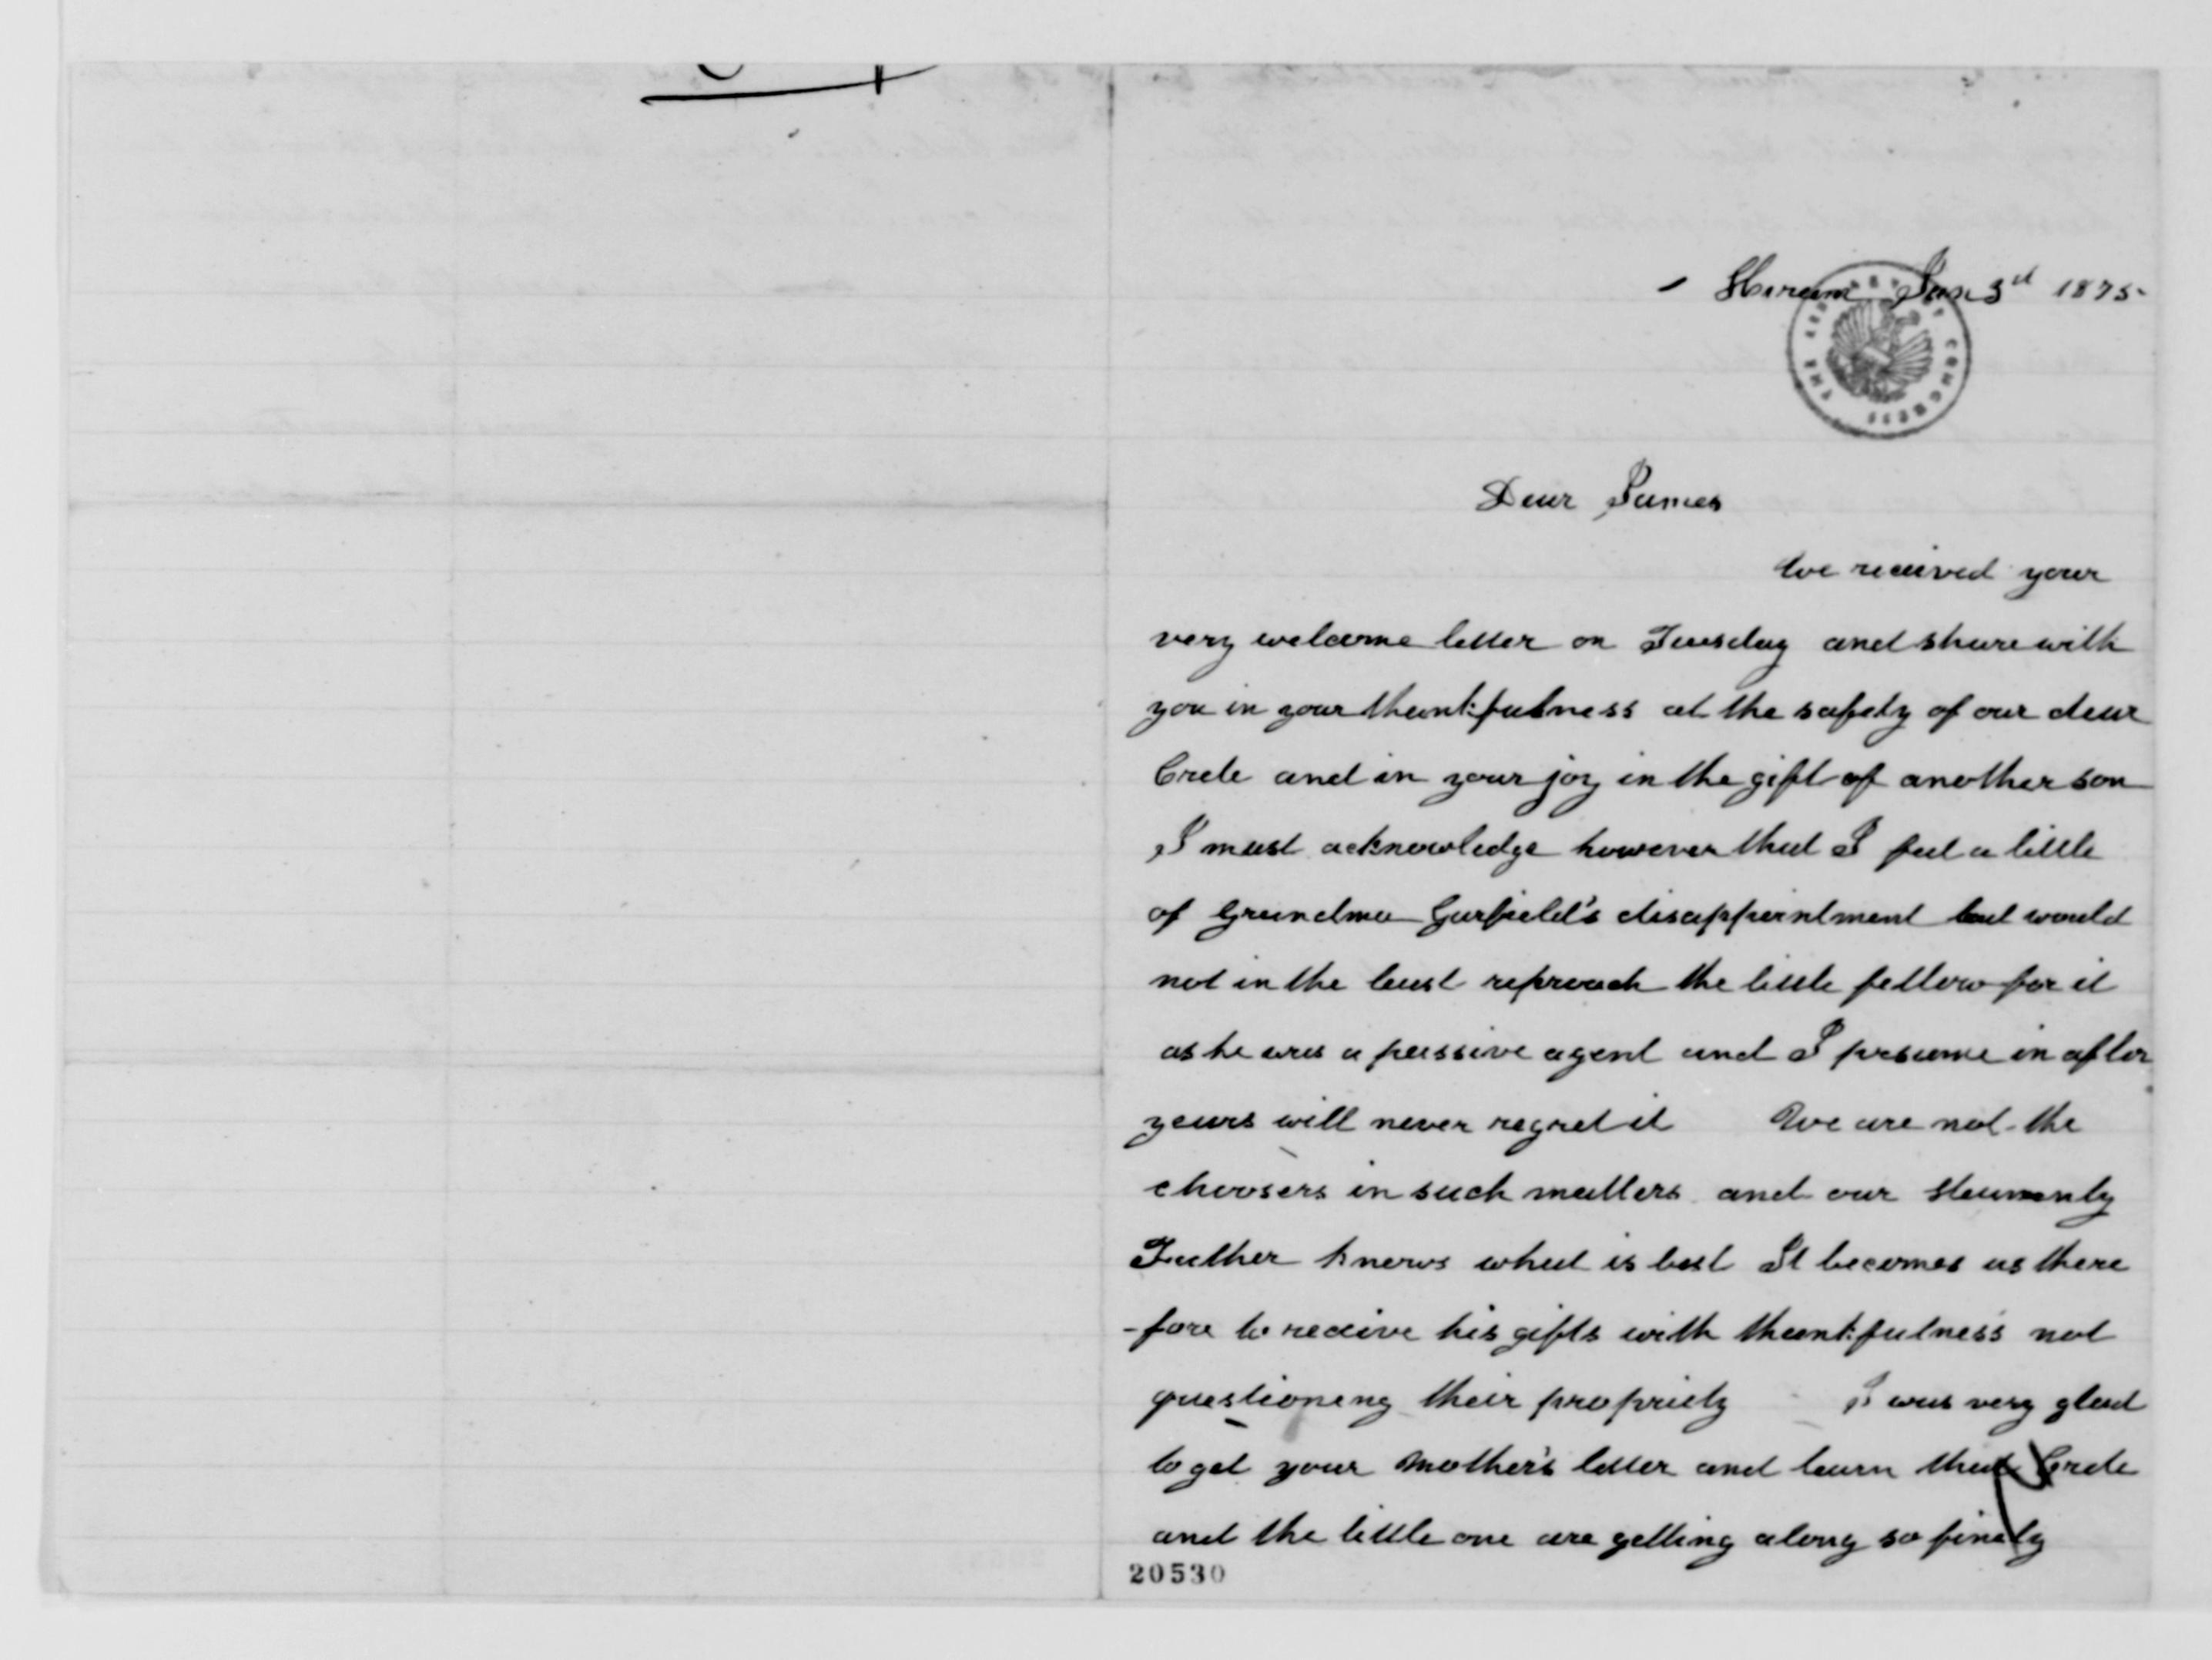 Hiram Jan 3d 1875-
THE LIBRARY OF CONGRESS
Dear James
We received your
very welcome letter on Tuesday and share with
you in your thankfulness at the safety of our dear
Crete and in your joy in the gift of another son
I must acknowledge however that I feel a little
of Grandma Garfield's disappointment but would
not in the least reproach the little fellow for it
as he was a passive agent and I presume in after
years will never regret it We are not the
choosers in such matters and our Heavenly
Father knows what is best It becomes us there
-fore to receive his gifts with thankfulness not
questioning their propriety I was very glad
to get your Mother's letter and learn that Crete
and the little one are getting along so finely
20530